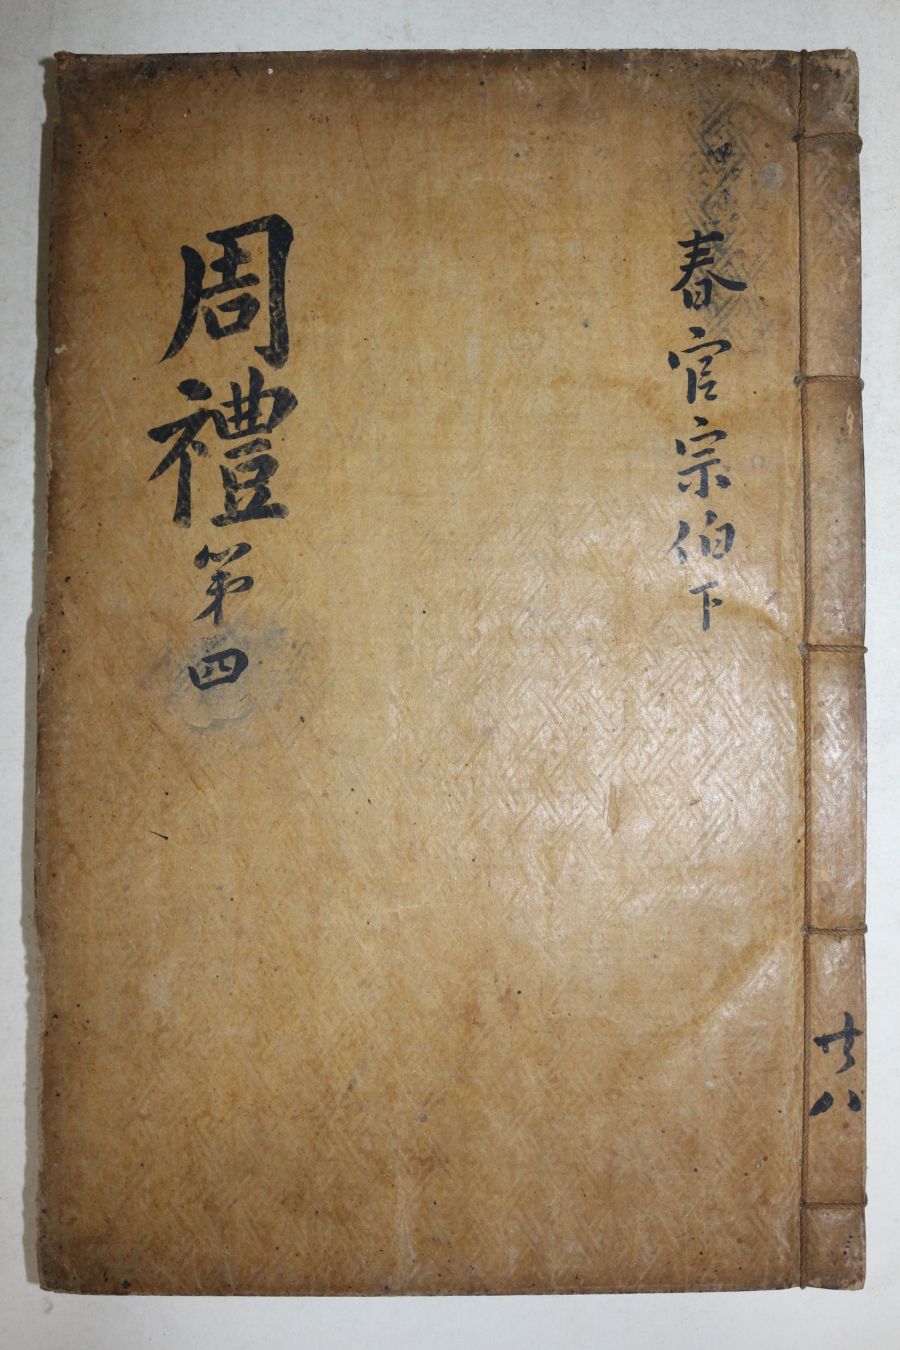 周禮第四
春官宗伯下
共八